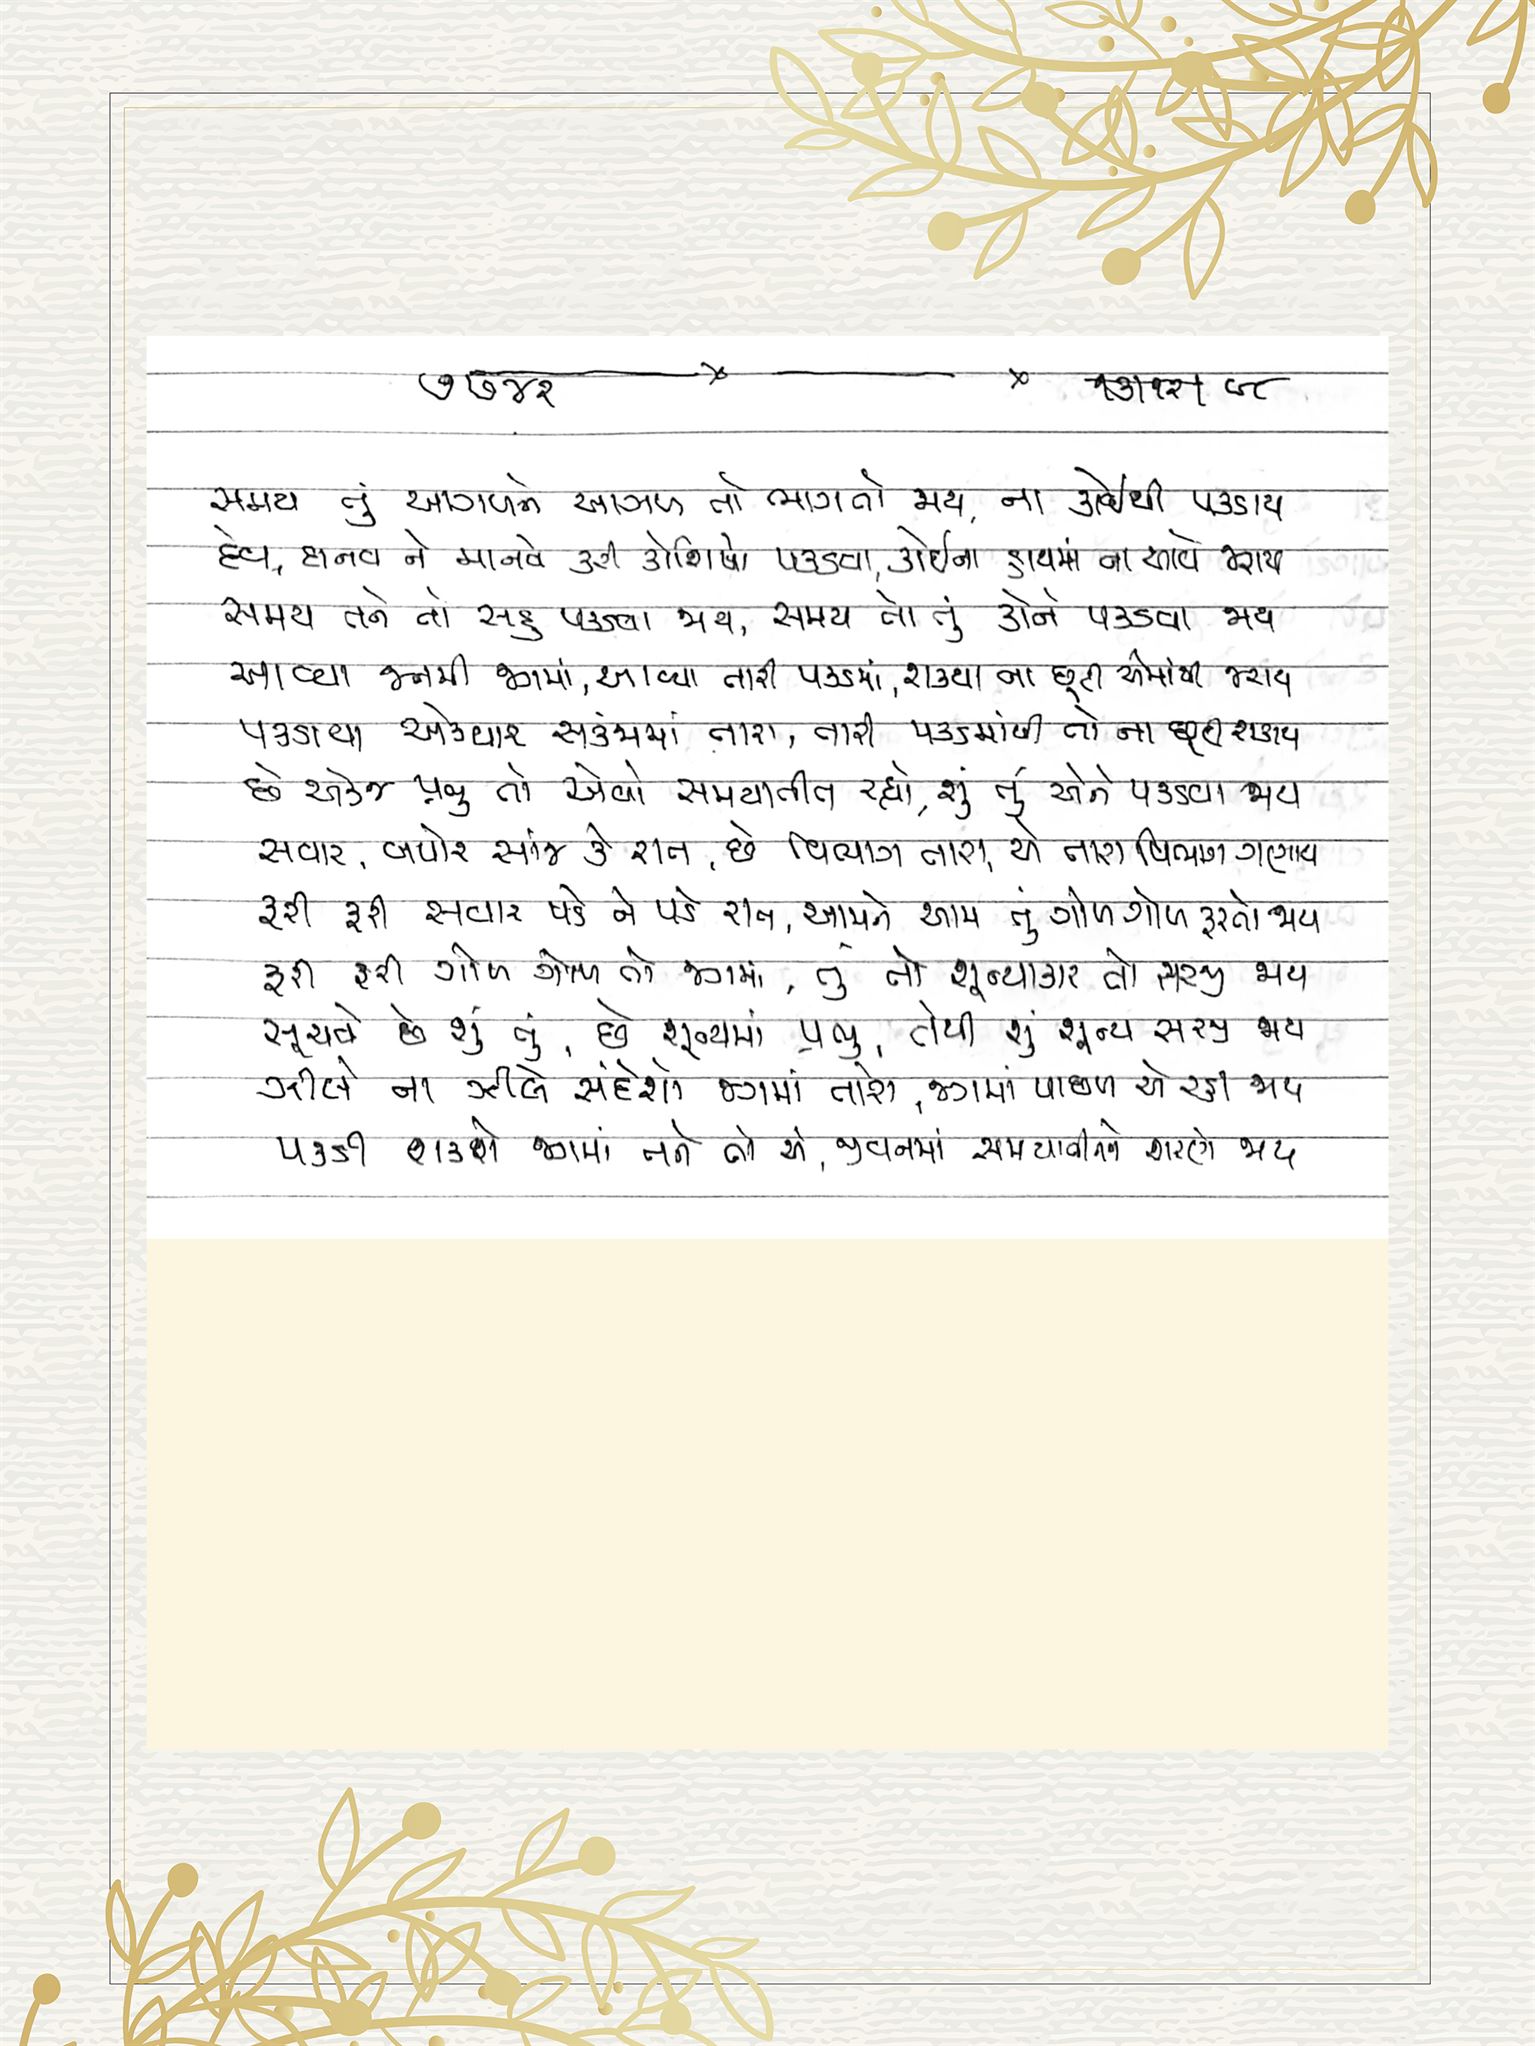 ૭૭૪૨ x x
સમય તું આગળને આગળ તો ભાગતો જાય, ના કોઈથી પકડાય
દેવ, દાનવ ને માનવે કરી કોશિષો પકડવા, કોઈના હાથમાં ના આવે જરાય
સમય તને તો સહુ પકડવા જાય, સમય તો તું કોને પકડવા જાય
આવ્યા જનમી જગમાં, આવ્યા તારી પકડમાં, શક્યા ના છૂટી એમાંથી જરાય
પકડાયા એકવાર સકંજામાં તારા, તારી પકડમાંથી તો ના છૂટી શકાય
છે એકજ પ્રભુ તો એવો સમયાતીત રહ્યો, શું તું એને પકડવા જાય
સવાર, બપોર સાંજ કે રાત, છે વિભાગ તારા, એ તારા વિભાગ ગણાય
ફરી ફરી સવાર પડે ને પડે રાત, આમને આમ તું ગોળ ગોળ ફરતો જાય
ફરી ફરી ગોળ ગોળ તો જગમાં, તું તો શૂન્યાકાર તો સરજી જાય
સૂચવે છે શું તું, છે શૂન્યમાં પ્રભુ, તેથી શું શૂન્ય સરજી જાય
ઝીલે ના ઝીલે સંદેશો જગમાં તારો, જગમાં પાછળ એ રહી જાય
પકડી શકશે જગમાં તને તો એ, જીવનમાં સમયાતીતને શરણે જાય